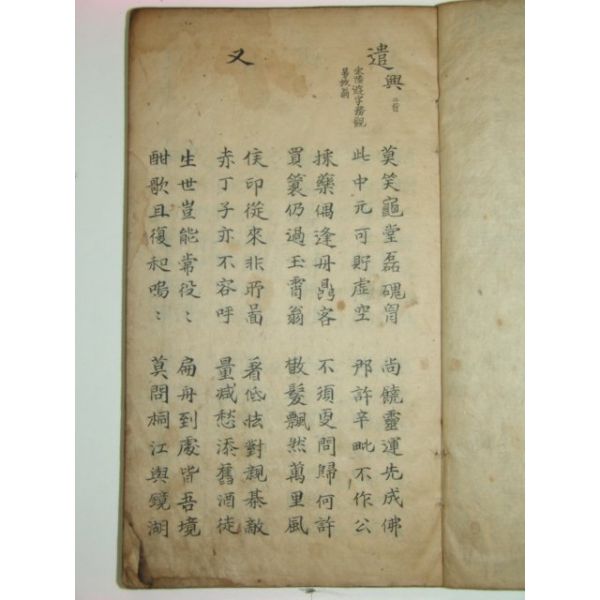 遣興 二首
宋陸游字務觀
號放翁
莫笑龜堂磊磈胷 尚饒靈運先成佛
此中元可貯虛空 那許辛毗不作公
採藥偶逢丹鼎客 不須更問歸何許
買簑仍過玉霄翁 散髮飄然萬里風
又
侯印從來非所啚 着低怯對親棊敵
赤丁子亦不容呼 量減愁添舊酒徒
生世豈能常役〻 扁舟到處皆吾境
酣歌且復和嗚〻 莫問桐江與鏡湖